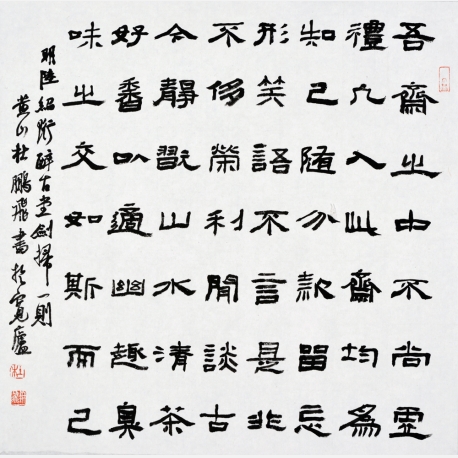 吾齋之中不尚虛
禮凡入此齋均為
知己随分款留忘
形笑語不言是非
不侈榮利閒談古
今靜翫山水清茶
好香以適幽趣臭
味之交如斯而已
明陸紹珩醉古堂劍掃一則
黄山杜鵬飛書於寬廬